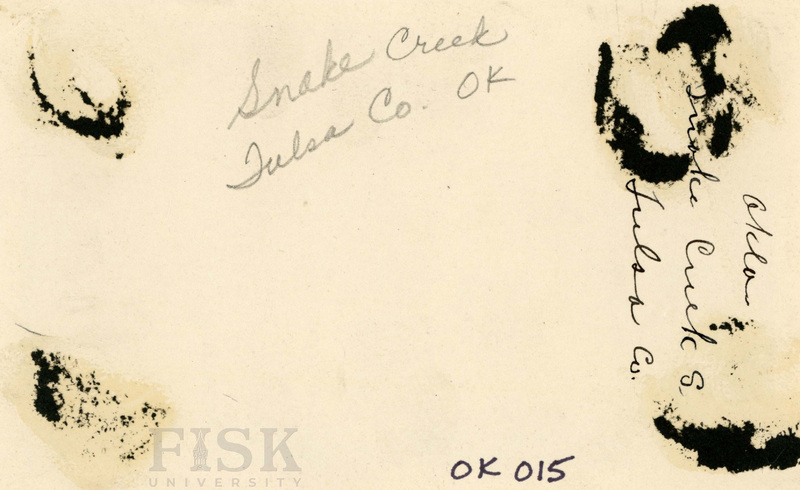 Snake Creek
Tulsa Co. OK
Okla.
Snake Creek S
Tulsa Co.
OK 015
FISK
UNIVERSITY